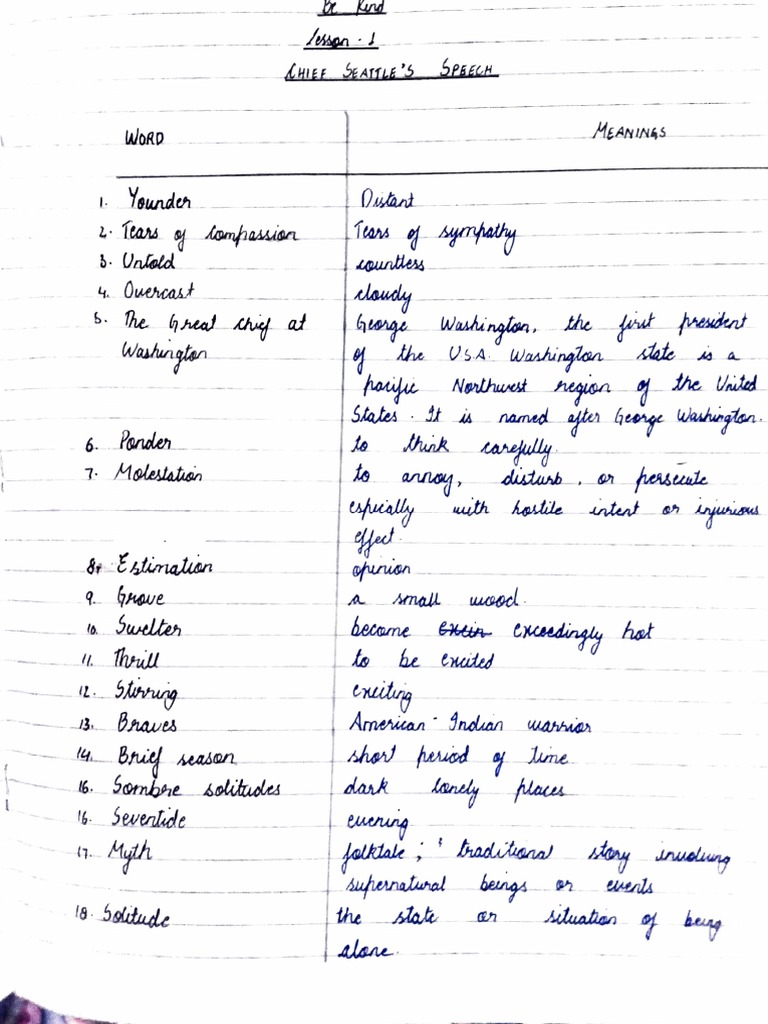 Be Kind
Lesson - 1
CHIEF SEATTLE'S SPEECH
WORD MEANINGS
1. Younder Distant
2. Tears of compassion Tears of sympathy
3. Untold countless
4. Overcast cloudy
5. The Great chief at George Washington, the first president
Washington of the U.S.A. Washington state is a
pacific Northwest region of the United
States. It is named after George Washington.
6. Ponder to think carefully.
7. Molestation to annoy, disturb, or persecute
espically with hostile intent or injurious
effect.
8. Estimation opinion
9. Grove a small wood.
10. Swelter become exceedingly hot
11. Thrill to be excited
12. Stirring exciting
13. Braves American-Indian warrior
14. Brief season short period of time
16. Sombre solitudes dark lonely places
16. Seventide evening
17. Myth folktale; traditional story involving
supernatural beings or events
18. Solitude the state or situation of being
alone.